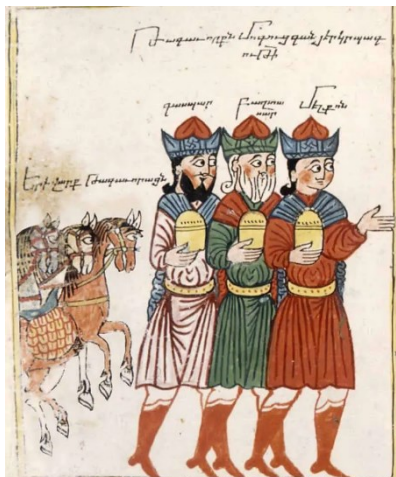 Թագաւորքն Մոգուց գան յերկրպագ
ութի
գասպար
Բաղտա
սար
Մելքոն
Երիվարք Թագաւորացն